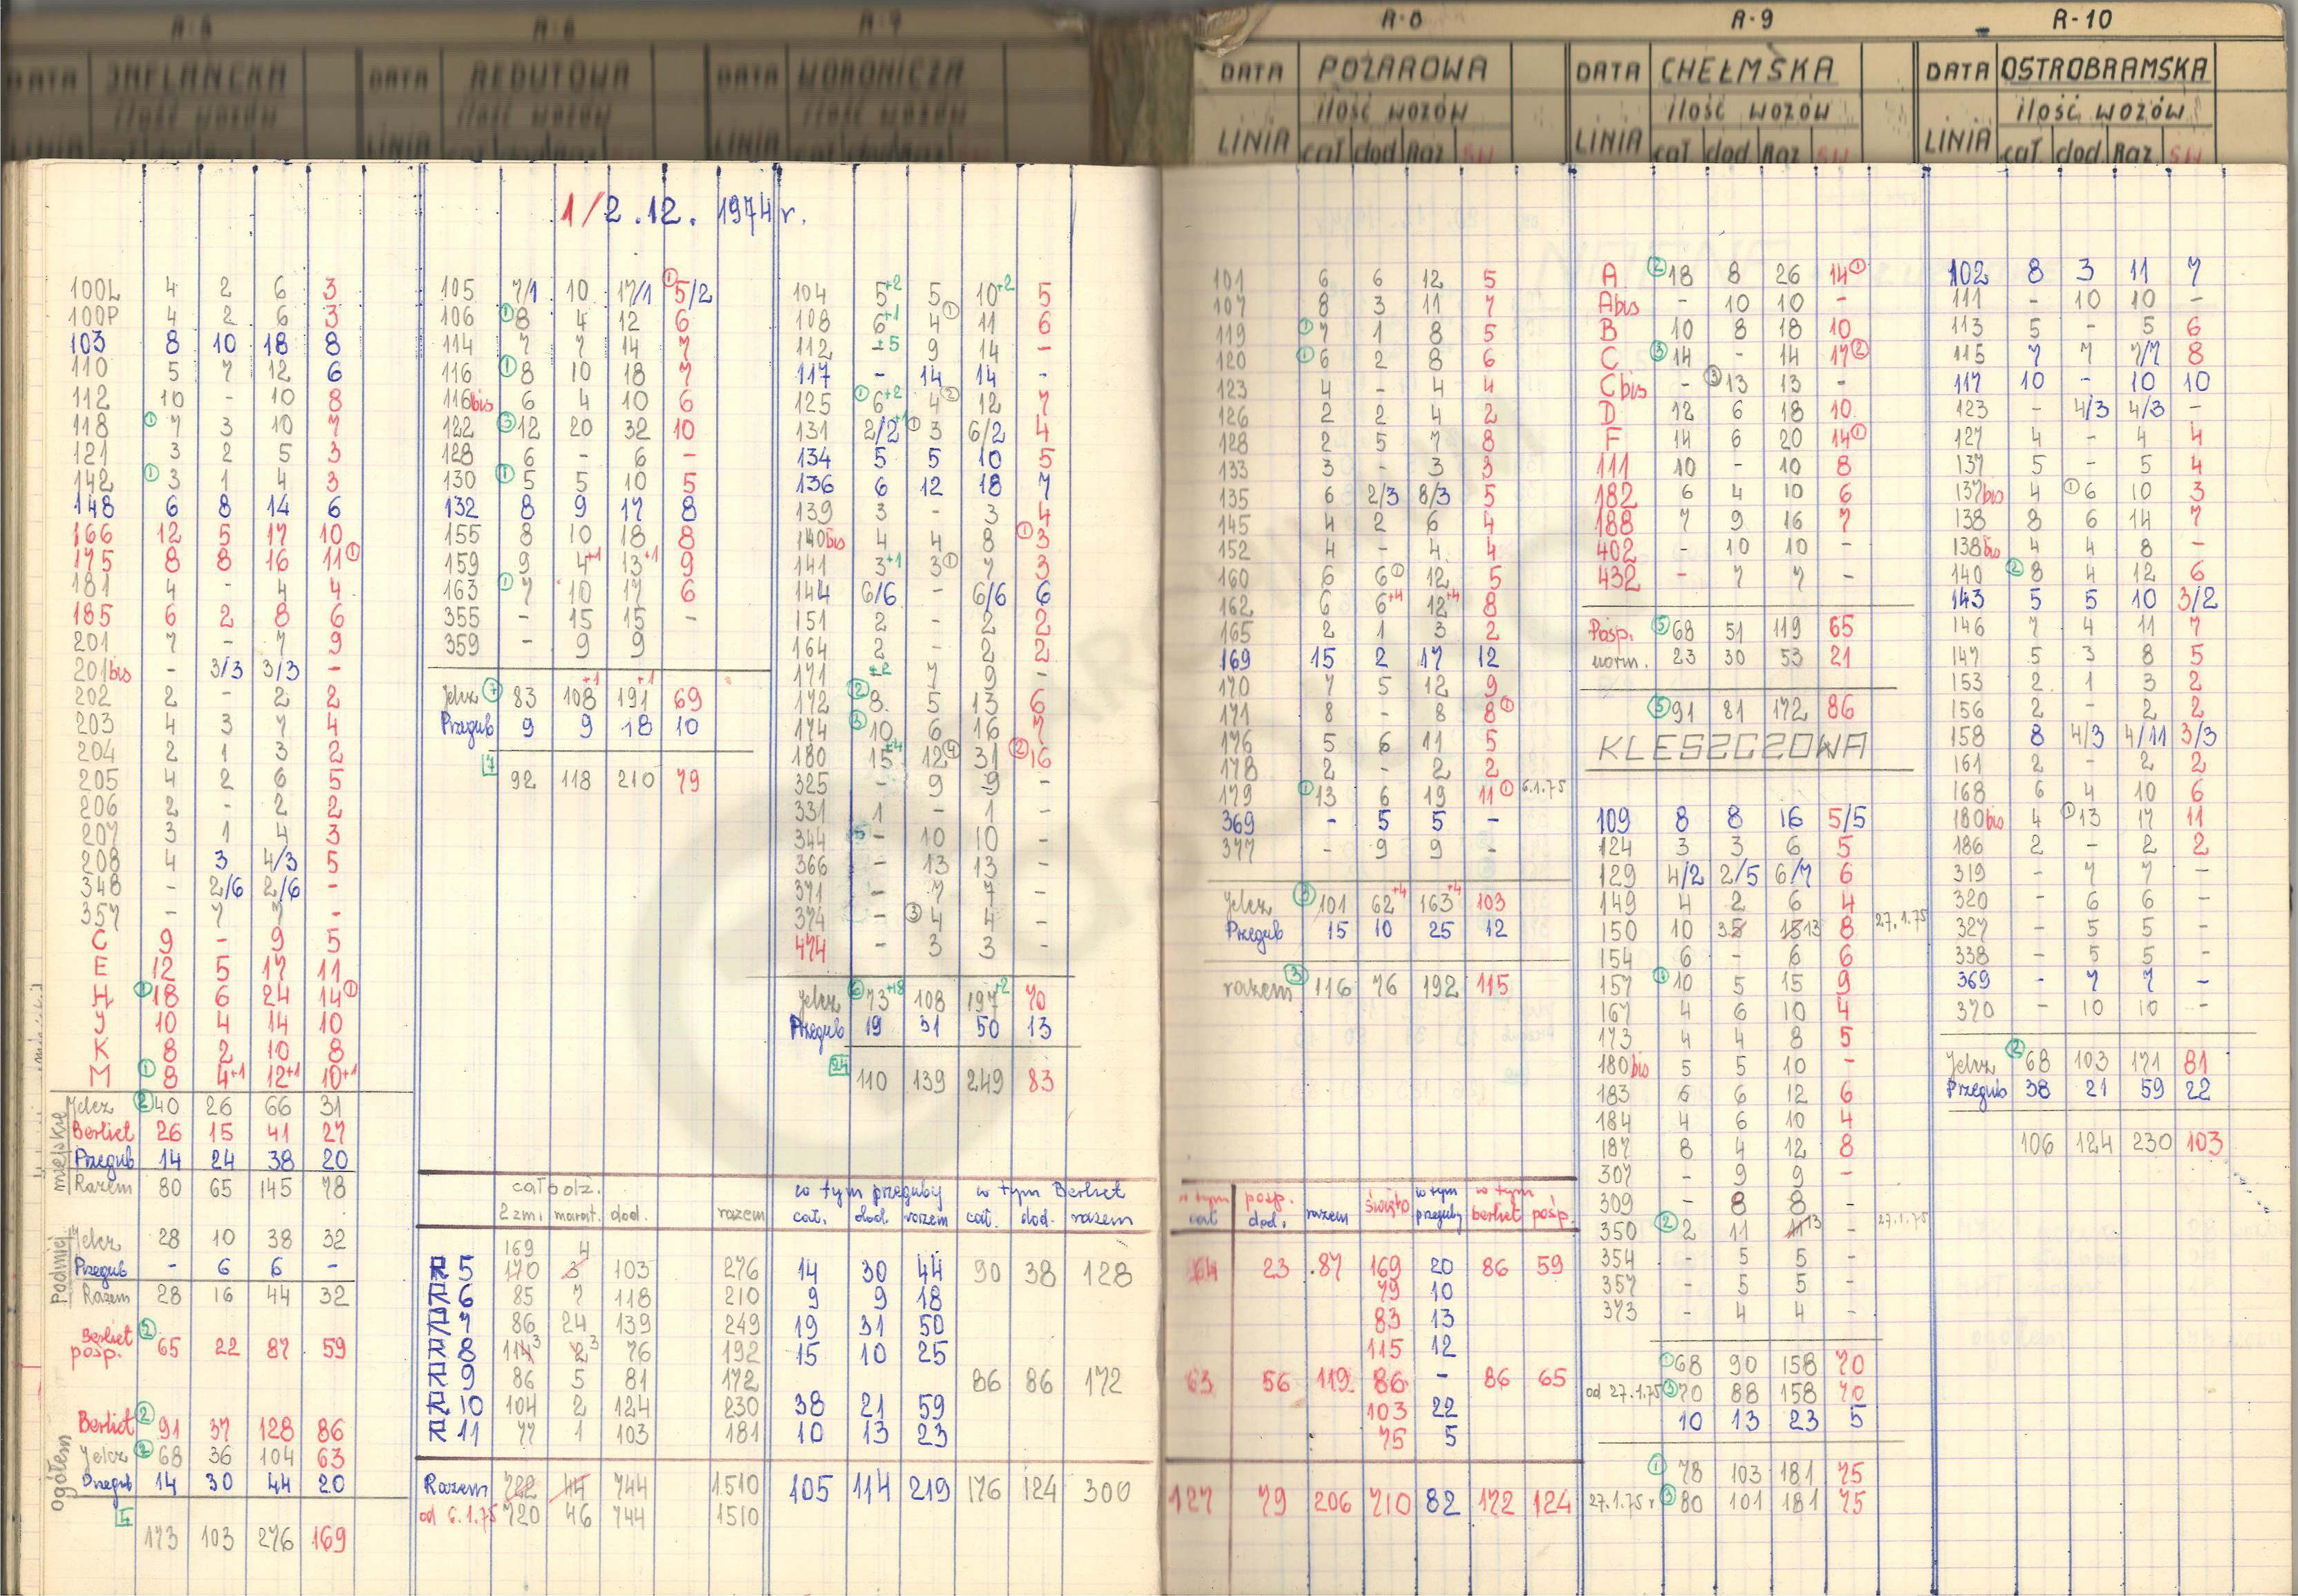 R-5 R-6 R-7 R-8 R-9 R-10
DATA INFLANCKA DATA REDUTOWA DATA WORONICZA DATA POŻAROWA DATA CHEŁMSKA DATA OSTROBRAMSKA
ilość wozów ilość wozów ilość wozów ilość wozów ilość wozów ilość wozów
LINIA LINIA LINIA LINIA cał dod Raz św LINIA cał dod Raz św LINIA cał. dod. Raz św
1/2.12. 1974 r.
100L 4 2 6 3
100P 4 2 6 3
103 8 10 18 8
110 5 7 12 6
112 10 - 10 8
118 ① 7 3 10 7
121 3 2 5 3
142 ① 3 1 4 3
148 6 8 14 6
166 12 5 17 10
175 8 8 16 11 ①
181 4 - 4 4
185 6 2 8 6
201 7 - 7 9
201bis - 3/3 3/3 -
202 2 - 2 2
203 4 3 7 4
204 2 1 3 2
205 4 2 6 5
206 2 - 2 2
207 3 1 4 3
208 4 3 4/3 5
348 - 2/6 2/6 -
357 - 7 7 -
C 9 - 9 5
E 12 5 17 11
H ① 18 6 24 14 ①
J 10 4 14 10
K 8 2 10 8
M ① 8 4+1 12+1 10+1
miejskie
Jelcz ② 40 26 66 31
Berliet 26 15 41 27
Przegub 14 24 38 20
Razem 80 65 145 78
Podmiej
Jelcz 28 10 38 32
Przegub - 6 6 -
Razem 28 16 44 32
Berliet pośp. ② 65 22 87 59
ogółem
Berliet ② 91 37 128 86
Jelcz ② 68 36 104 63
Przegub 14 30 44 20
173 103 276 169
105 7/1 10 17/1 ① 5/2
106 ① 8 4 12 6
114 7 7 14 7
116 ① 8 10 18 7
116bis 6 4 10 6
122 ③ 12 20 32 10
128 6 - 6 -
130 ① 5 5 10 5
132 8 9 17 8
155 8 10 18 8
159 9 4+1 13+1 9
163 ① 7 10 17 6
355 - 15 15 -
359 - 9 9
Jelcz ⑦ 83 108+1 191+1 69
Przegub 9 9 18 10
7 92 118 210 79
104 5+2 5 10+2 5
108 6+1 4 ① 11 6
112 +5 9 14 -
117 - 14 14 -
125 ① 6+2 4 ② 12 7
131 2/2+1 ① 3 6/2 4
134 5 5 10 5
136 6 12 18 7
139 3 - 3 4
140bis 4 4 8 ① 3
141 3+1 3 ① 7 3
144 6/6 - 6/6 6
151 2 - 2 2
164 2 - 2 2
171 +2 7 9 -
172 ② 8 5 13 6
174 ③ 10 6 16 7
180 15+4 12 ④ 31 ② 16
325 - 9 9 -
331 1 - 1 -
344 - 10 10 -
366 - 13 13 -
371 - 7 7 -
374 - ③ 4 4 -
474 - 3 3 -
Jelcz ⑥ 73+18 108 197+2 70
Przegub 19 31 50 13
24 110 139 249 83
101 6 6 12 5
107 8 3 11 7
119 ① 7 1 8 5
120 ① 6 2 8 6
123 4 - 4 4
126 2 2 4 2
128 2 5 7 8
133 3 - 3 3
135 6 2/3 8/3 5
145 4 2 6 4
152 4 - 4 4
160 6 6 ① 12 5
162 6 6+4 12+4 8
165 2 1 3 2
169 15 2 17 12
170 7 5 12 9
171 8 - 8 8 ①
176 5 6 11 5
178 2 - 2 2
179 ① 13 6 19 11 ① 6.1.75
369 - 5 5 -
377 - 9 9 -
Jelcz ③ 101 62+4 163+4 103
Przegub 15 10 25 12
razem ③ 116 76 192 115
A ② 18 8 26 14 ①
Abis - 10 10 -
B 10 8 18 10
C ③ 14 - 14 17 ②
Cbis - ③ 13 13 -
D 12 6 18 10
F 14 6 20 14 ①
111 10 - 10 8
182 6 4 10 6
188 7 9 16 7
402 - 10 10 -
432 - 7 7 -
Pośp. ⑤ 68 51 119 65
norm. 23 30 53 21
⑤ 91 81 172 86
KLESZCZOWA
109 8 8 16 5/5
124 3 3 6 5
129 4/2 2/5 6/7 6
149 4 2 6 4
150 10 35 15 13 8 27.1.75
154 6 - 6 6
157 ① 10 5 15 9
167 4 6 10 4
173 4 4 8 5
180bis 5 5 10 -
183 6 6 12 6
184 4 6 10 4
187 8 4 12 8
307 - 9 9 -
309 - 8 8 -
350 ② 2 11 11 13 - 27.1.75
354 - 5 5 -
357 - 5 5 -
373 - 4 4 -
① 68 90 158 70
od 27.1.75 ③ 70 88 158 70
10 13 23 5
① 78 103 181 75
27.1.75 r ③ 80 101 181 75
102 8 3 11 7
111 - 10 10 -
113 5 - 5 6
115 7 7 7/7 8
117 10 - 10 10
123 - 4/3 4/3 -
127 4 - 4 4
137 5 - 5 4
137bis 4 ① 6 10 3
138 8 6 14 7
138bis 4 4 8 -
140 ② 8 4 12 6
143 5 5 10 3/2
146 7 4 11 7
147 5 3 8 5
153 2 1 3 2
156 2 - 2 2
158 8 4/3 4/11 3/3
161 2 - 2 2
168 6 4 10 6
180bis 4 ① 13 17 11
186 2 - 2 2
319 - 7 7 -
320 - 6 6 -
327 - 5 5 -
338 - 5 5 -
369 - 7 7 -
370 - 10 10 -
Jelcz ② 68 103 171 81
Przegub 38 21 59 22
106 124 230 103
całodz. w tym przeguby w tym Berliet w tym pośp. święto w tym przeguby w tym berliet pośp.
2 zm. marat. dod. razem cał. dod. razem cał. dod. razem cał dod. razem
169 4
R 5 170 3 103 276 14 30 44 90 38 128 64 23 87 169 20 86 59
R 6 85 7 118 210 9 9 18 79 10
R 7 86 24 139 249 19 31 50 83 13
R 8 114 3 2 3 76 192 15 10 25 115 12
R 9 86 5 81 172 86 86 172 63 56 119 86 - 86 65
R 10 104 2 124 230 38 21 59 103 22
R 11 77 1 103 181 10 13 23 75 5
Razem 722 44 744 1510 105 114 219 176 124 300 127 79 206 710 82 172 124
od 6.1.75 720 46 744 1510